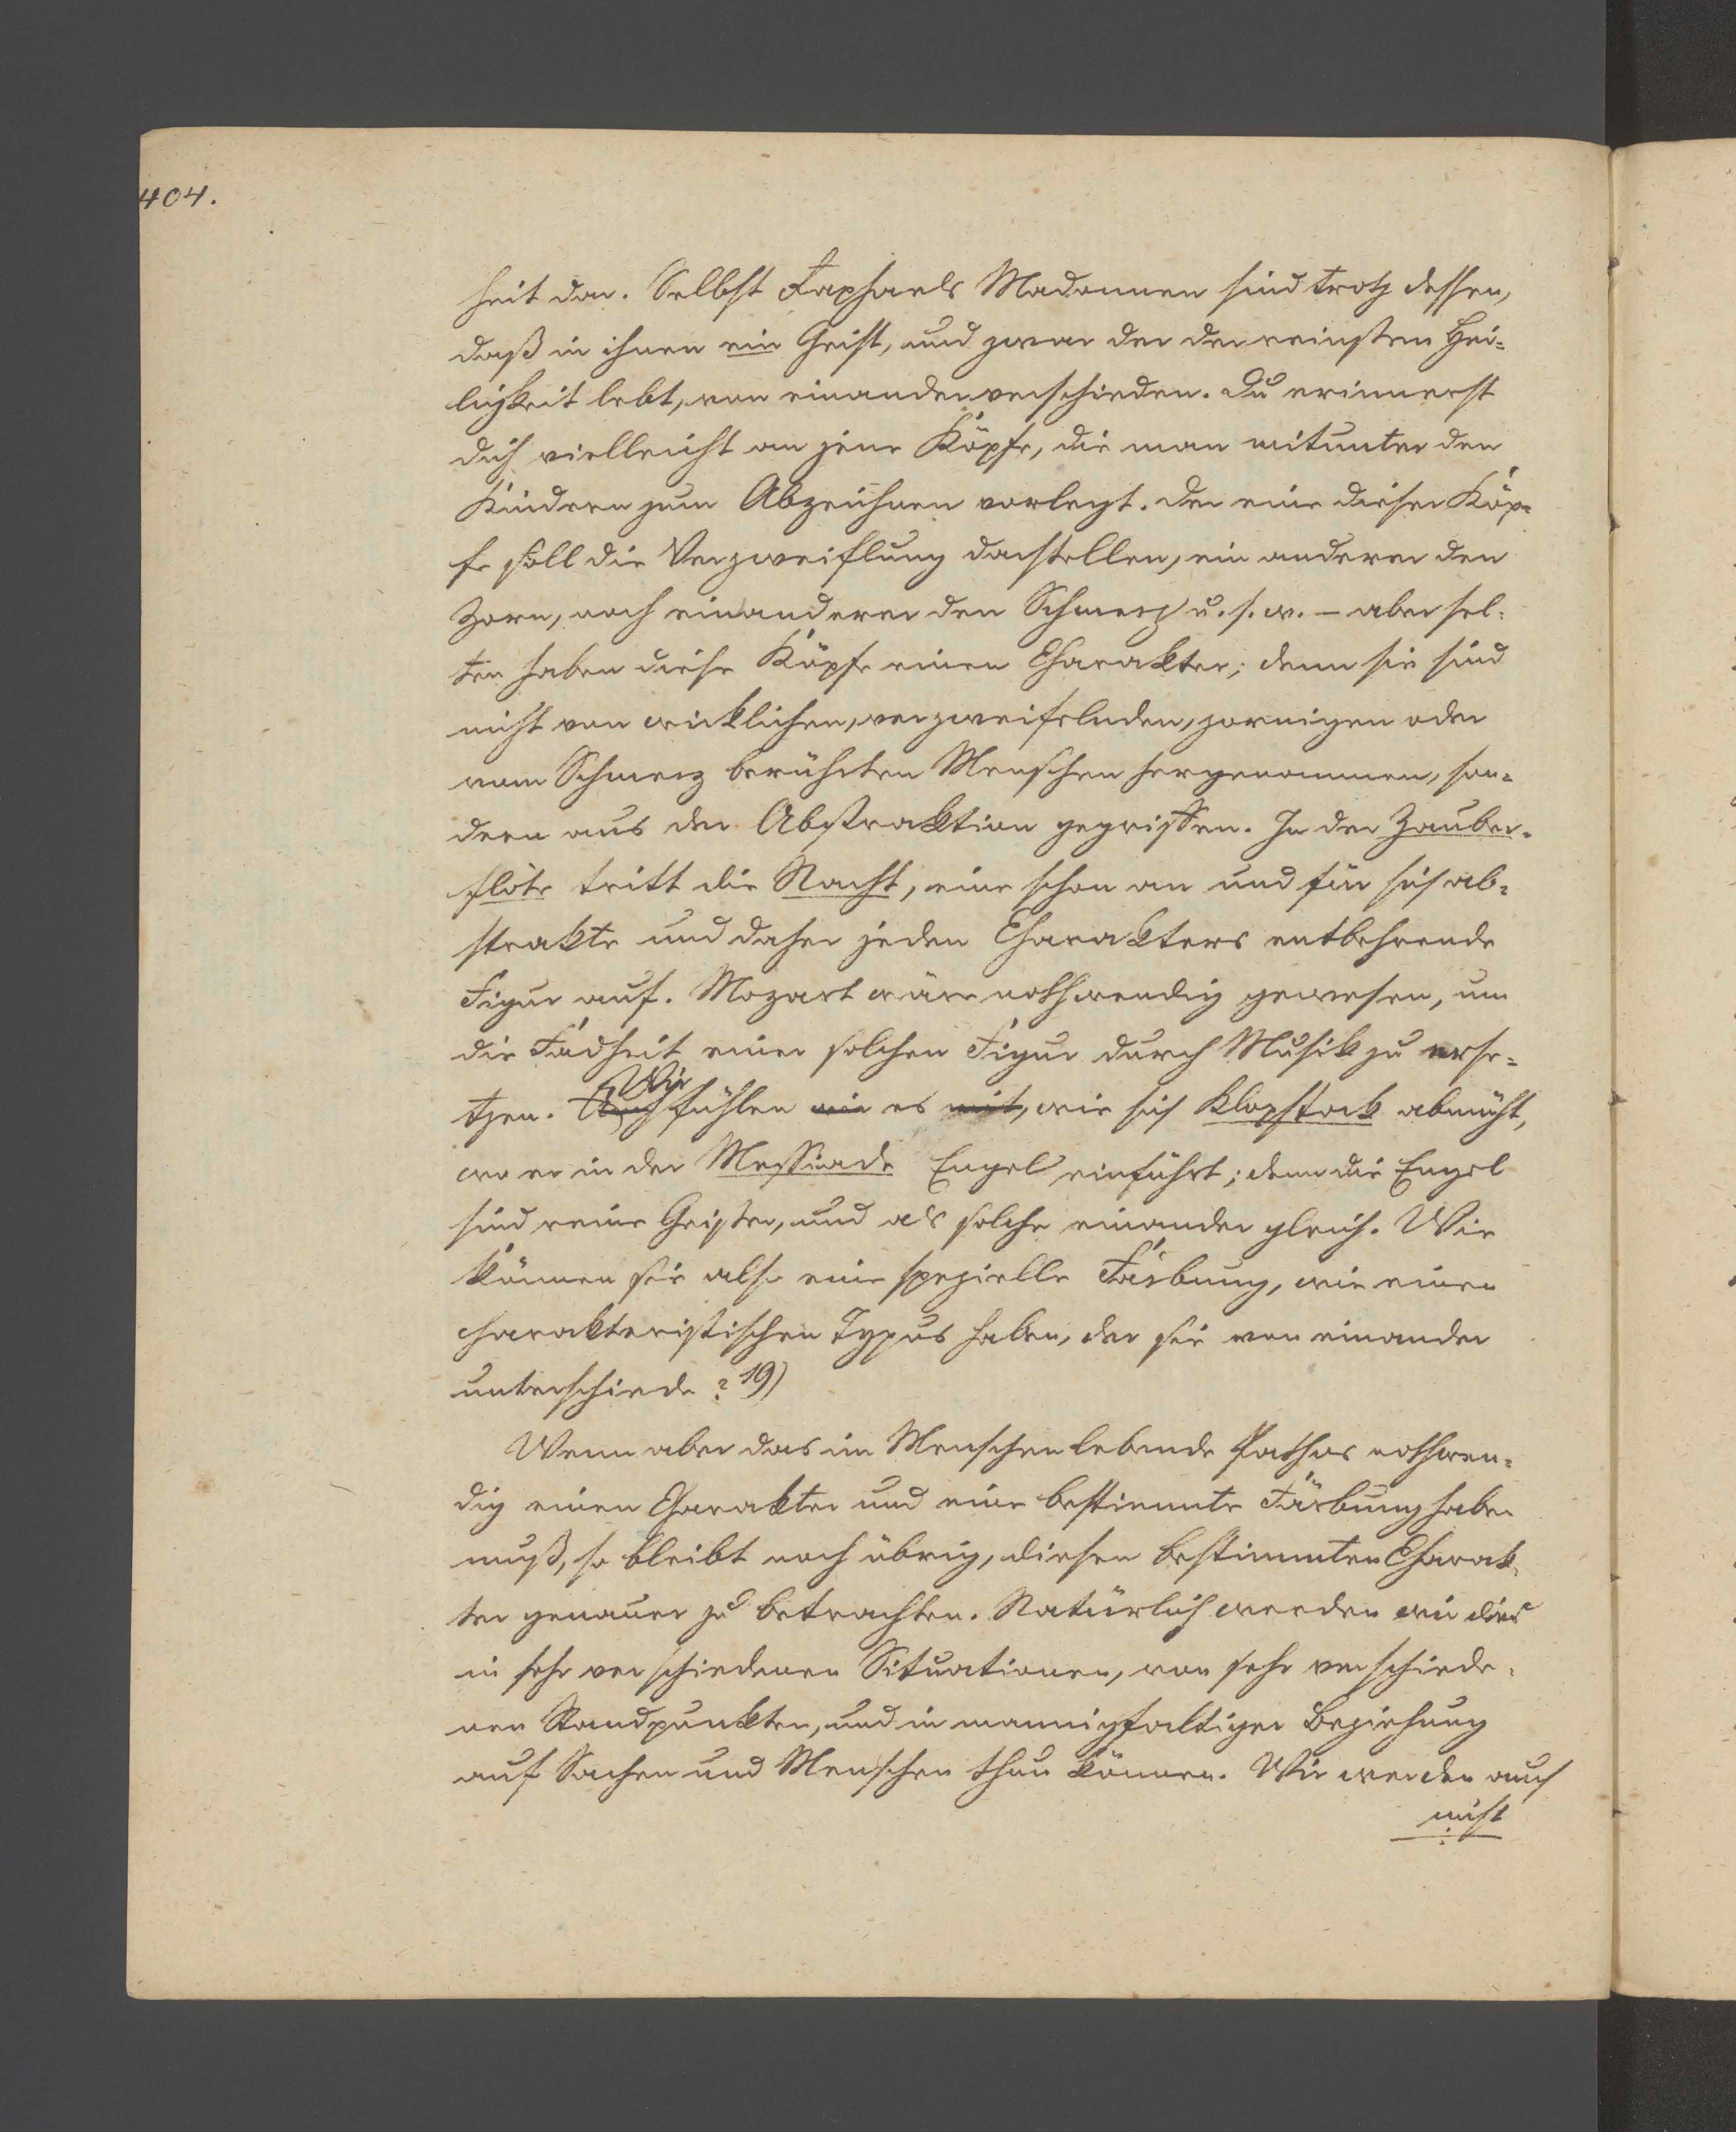 404.
heit dar. Selbst Raphaels Madonnen sind trotz dessen,
daß in ihnen ein Geist, und zwar der der reinsten Hei-
ligkeit lebt, von einander verschieden. Du erinnerst
dich vielleicht an jene Köpfe, die man mitunter den
Kindern zum Abzeichnen vorlegt. Der eine dieser Köp-
fe soll die Verzweiflung darstellen, ein anderer den
Zorn, noch ein anderer den Schmerz u. s. w. – aber sel-
ten haben diese Köpfe einen Charakter; denn sie sind
nicht von wirklichen, verzweifelnden, zornigen oder
vom Schmerz berührten Menschen hergenommen, son-
dern aus der Abstraktion gegriffen. In der Zauber-
flöte tritt die Nacht, eine schon an und für sich ab-
strakte und daher jeden Charakters entbehrende
Figur auf. Mozart wäre nothwendig gewesen, um
die Fadheit einer solchen Figur durch Musik zu erse-
tzen. Auch Wir fühlen wir es mit, wie sich Klopstock abmüht,
wo er in der Messiade Engel einführt; denn die Engel
sind reine Geister, und als solche einander gleich. Wie
können sie also eine spezielle Färbung, wie einen
charakteristischen Typus haben, der sie von einander
unterschiede? 19)
Wenn aber das im Menschen lebende Pathos nothwen-
dig einen Charakter und eine bestimmte Färbung haben
muß, so bleibt noch übrig, diesen bestimmten Charak-
ter genauer zu betrachten. Natürlich werden wir dies
in sehr verschiedenen Situationen, von sehr verschiede-
nen Standpunkten, und in mannigfaltiger Beziehung
auf Sachen und Menschen thun können. Wir werden auch
nicht